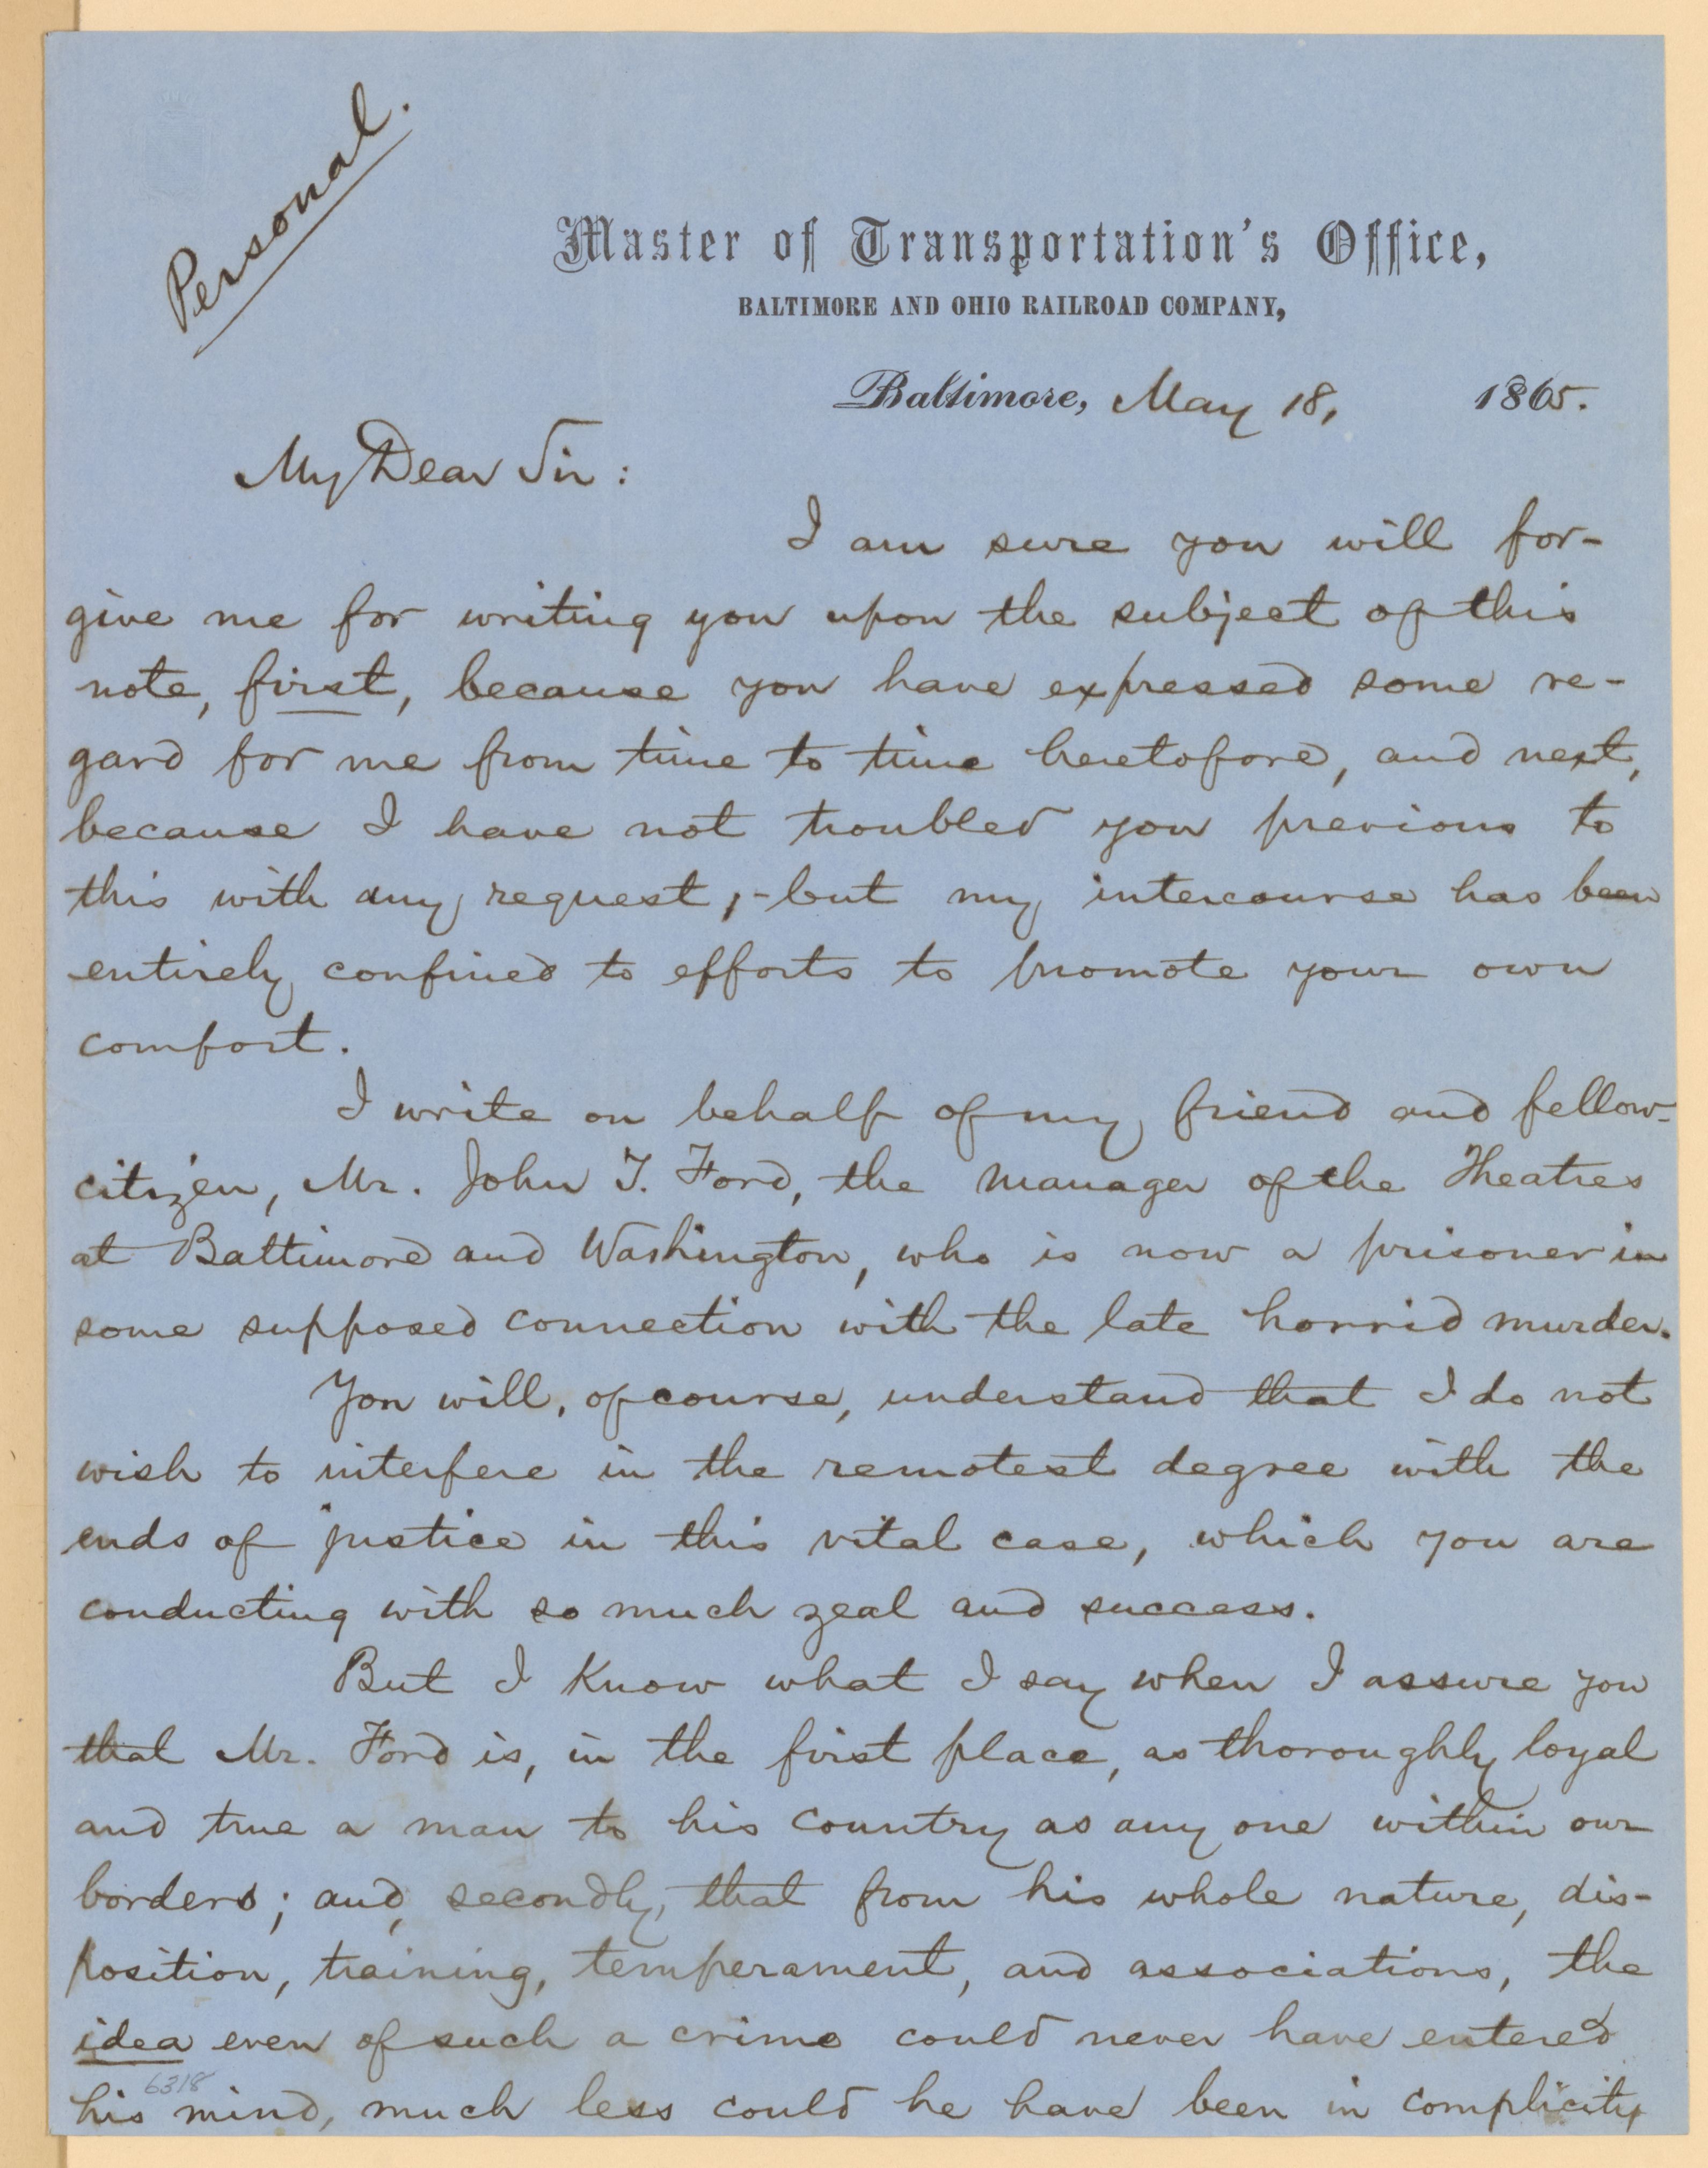 Personal.
Master of Transportation's Office,
BALTIMORE AND OHIO RAILROAD COMPANY,
Baltimore, May 18, 1865.
My Dear Sir:
I am sure you will for-
give me for writing you upon the subject of this
note, first, because you have expressed some re-
gard for me from time to time heretofore, and next,
because I have not troubled you previous to
this with any request; - but my intercourse has been
entirely confined to efforts to promote your own
comfort.
I write on behalf of my friend and fellow-
citizen, Mr. John T. Ford, the manager of the Theatres
at Baltimore and Washington, who is now a prisoner in
some supposed connection with the late horrid murder.
You will, of course, understand that I do not
wish to interfere in the remotest degree with the
ends of justice in this vital case, which you are
conducting with so much zeal and success.
But I know what I say when I assure you
that Mr. Ford is, in the first place, as thoroughly loyal
and true a man to his country as any one within our
borders; and, secondly, that from his whole nature, dis-
position, training, temperament, and associations, the
idea even of such a crime could never have entered
6318
his mind, much less could he have been in complicity